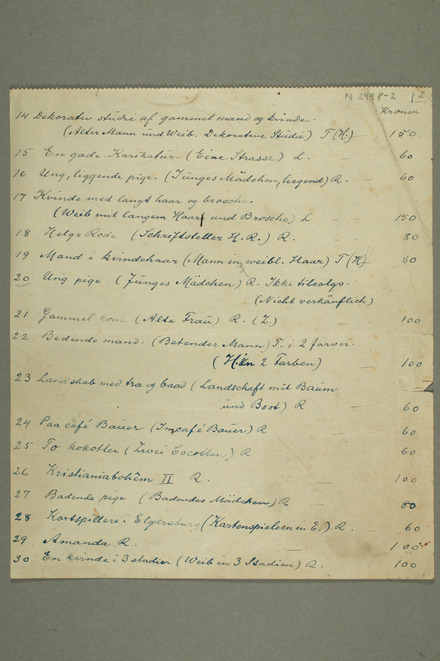 N 2998-2 12
Kroner
14 Dekorativ studie af gammel mand og kvinde.
(Alter Mann und Weib. Dekorative Studie) T (H.) — 150
15 En gade. Karikatur. (Eine Strasse) L. — 60
16 Ung, liggende pige. (Junges Mädchen, liegend) R. — 60
17 Kvinde med langt haar og brosche.
(Weib mit langem Haar und Brosche) L — 150
18 Helge Rode (Schriftsteller H. R.) R. — 80
19 Mand i kvindehaar (Mann in weibl. Haar) T (H) 60
20 Ung pige (Junges Mädchen) R. Ikke tilsalgs.
(Nicht verkäuflich)
21 Gammel kone (Alte Frau) R. (Z.) — 100
22 Bedende mand. (Betender Mann) T. i 2 farver.
(H. in 2 Farben) 100
23 Landskab med træ og baad (Landschaft mit Baum
und Boot) R 60
24 Paa café Bauer (Im café Bauer) R 60
25 To kokotter (Zwei Cocotten) R 60
26 Kristianiabohêm II R. — 100
27 Badende pige (Badendes Mädchen) R 80
28 Kortspillere i Elgersburg (Kartenspieler in E.) R. 60
29 Amanda R. — 100
30 En kvinde i 3 stadier (Weib in 3 Stadien) R. 100